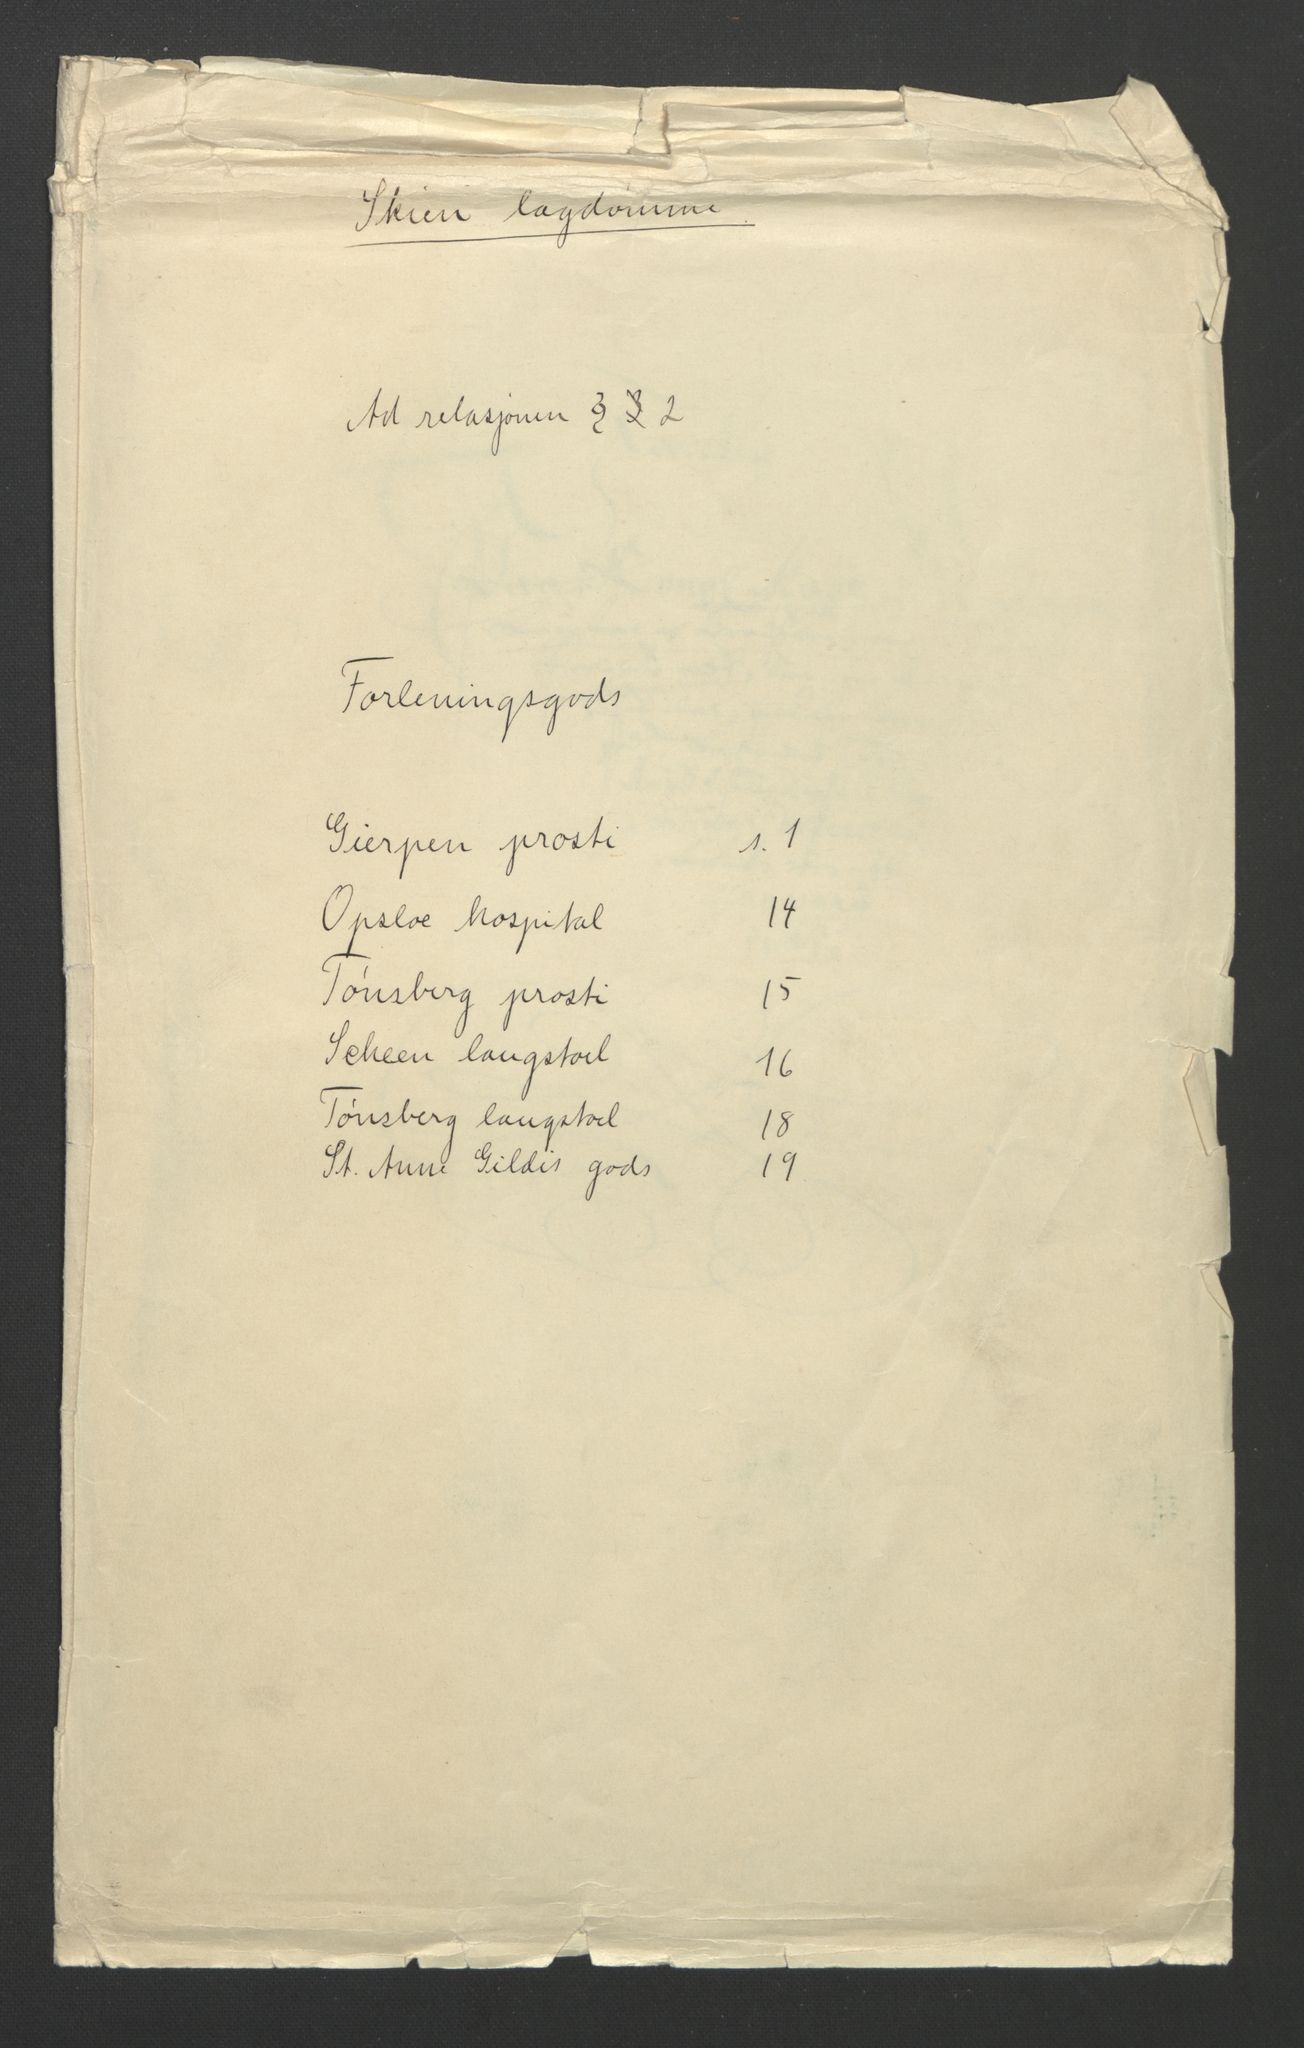 Skien lagdømme.
Ad relasjonen § 2
Forleningsgods
Gierpen prosti s. 1
Opsloe hospital 14
Tønsberg prosti 15
Scheen laugstoel 16
Tønsberg laugstoel 18
St. Anne Gildis gods 19